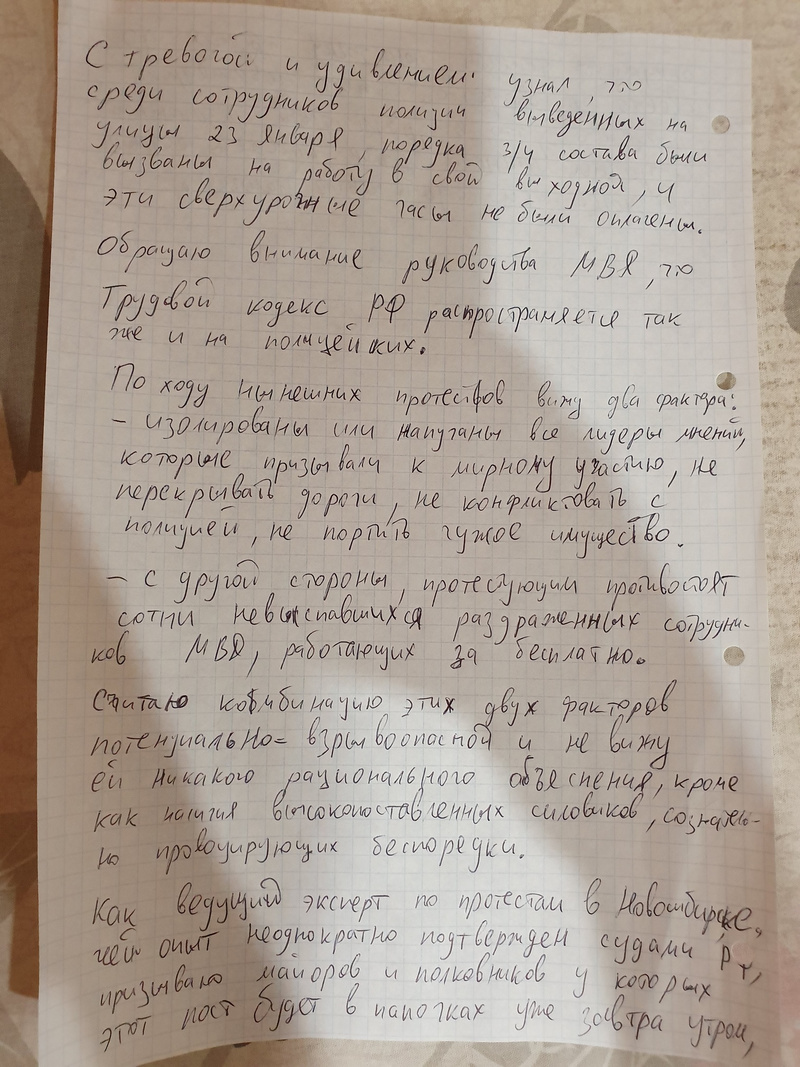 С тревогой и удивлением узнал, что
среди сотрудников полиции выведенных на
улицы 23 января, порядка 3/4 состава были
вызваны на работу в свой выходной, и
эти сверхурочные часы не были оплачены.
Обращаю внимание руководства МВД, что
Трудовой кодекс РФ распространяется так
же и на полицейских.
По ходу нынешних протестов вижу два фактора:
- изолированы или напуганы все лидеры мнений,
которые призывали к мирному участию, не
перекрывать дороги, не конфликтовать с
полицией, не портить чужое имущество.
- с другой стороны, протестующим противостоят
сотни невыспавшихся раздраженных сотрудни-
ков МВД, работающих за бесплатно.
Считаю комбинацию этих двух факторов
потенциально взрывоопасной и не вижу
ей никакого рационального объяснения, кроме
как наличия высокопоставленных силовиков, сознатель-
но провоцирующих беспорядки.
Как ведущий эксперт по протестам в Новосибирске,
чей опыт неоднократно подтвержден судами РФ,
призываю майоров и полковников у которых
этот пост будет в папочках уже завтра утром,